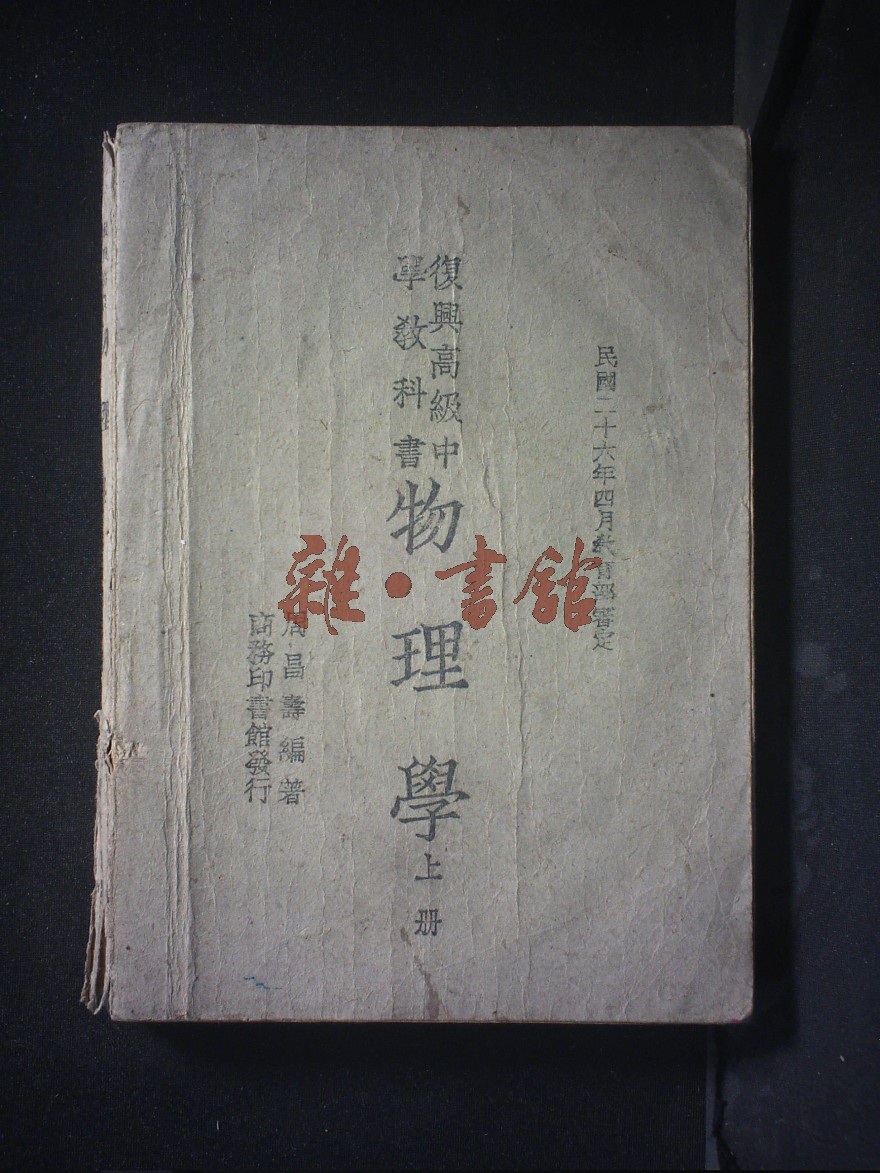 民國二十六年四月教育部審定
復興高級中
學教科書
物理學
上册
周昌壽編著
商務印書館發行
雜·書館